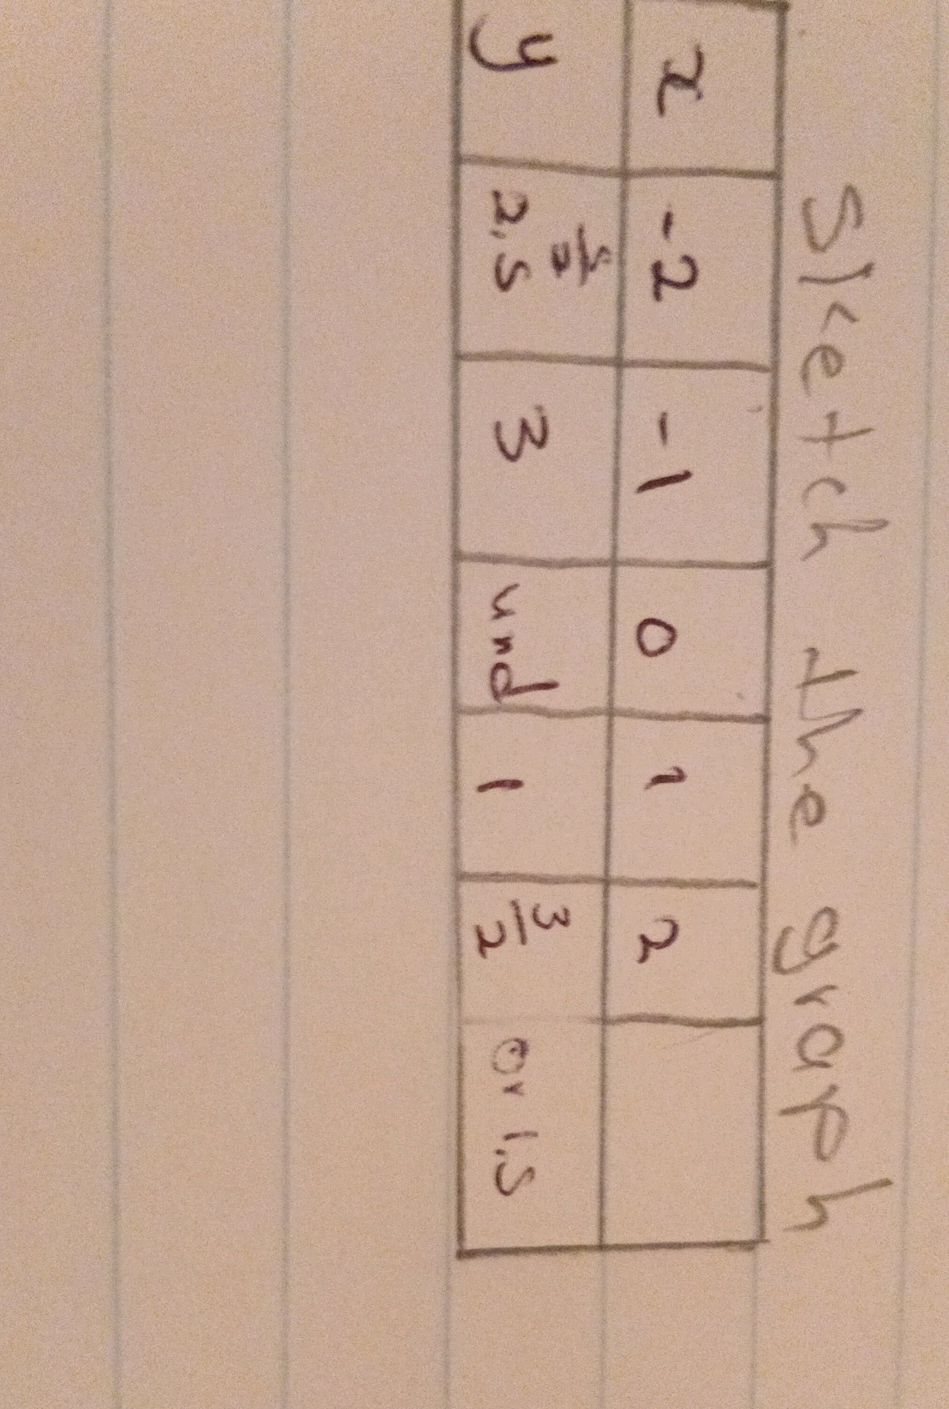 Sketch the graph
x -2 -1 0 1 2
y 5/2 2,5 3 und 1 3/2 or 1,5